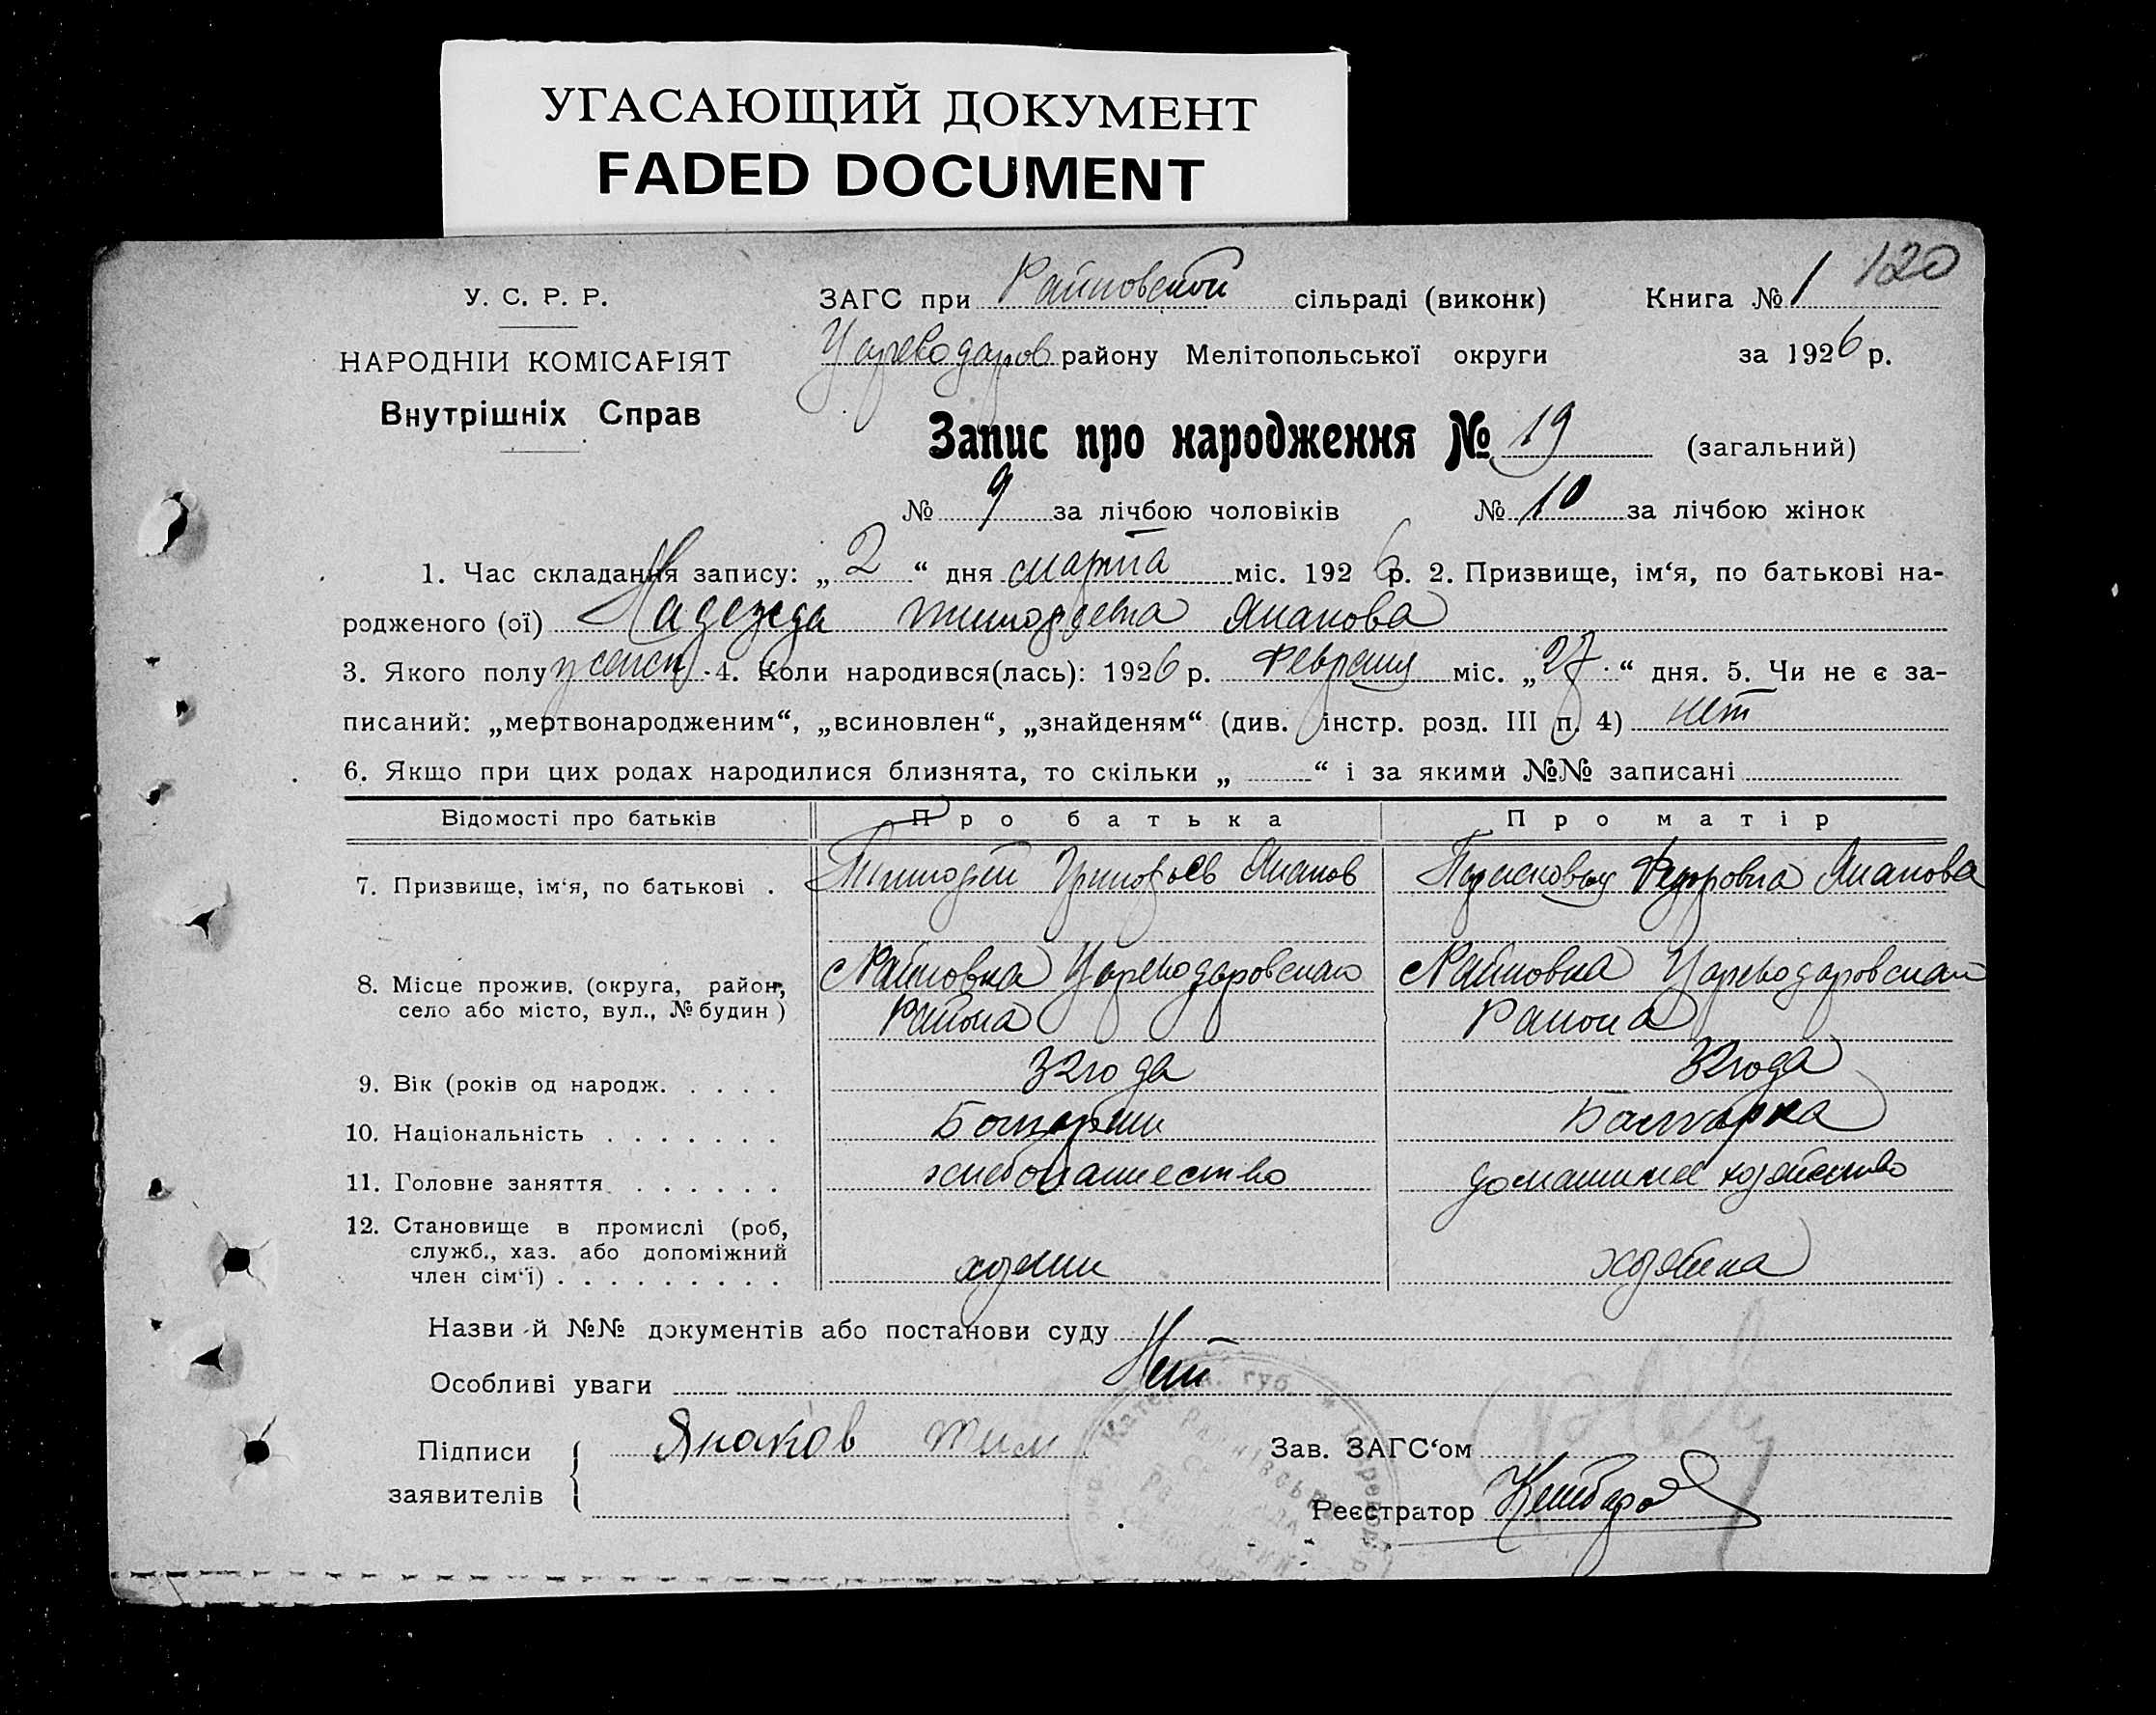 УГАСАЮЩИЙ ДОКУМЕНТ
FADED DOCUMENT
120
У. С. Р. Р.
ЗАГС при Райновской сільраді (виконк) Книга № 1
НАРОДНІЙ КОМІСАРІЯТ
Цареводаров району Мелітопольської округи за 1926 р.
Внутрішніх Справ
Запис про народження № 19 (загальний)
№ 9 за лічбою чоловіків № 10 за лічбою жінок
1. Час складання запису: „2“ дня марта міс. 1926 р. 2. Призвище, ім‘я, по батькові на-
родженого (ої) Надежда Тимофеевна Янакова
3. Якого полу женск. 4. Коли народився(лась): 1926 р. Февраля міс. „27“ дня. 5. Чи не є за-
писаний: „мертвонародженим“, „всиновлен“, „знайденям“ (див. інстр. розд. III п. 4) нет
6. Якщо при цих родах народилися близнята, то скільки „ “ і за якими №№ записані
Відомості про батьків Про батька Про матір
7. Призвище, ім‘я, по батькові . Тимофей Григорьев Янаков Парасковья Федоровна Янакова
8. Місце прожив. (округа, район, с Райновка Цареводаровскаго с Райновка Цареводаровскаго
село або місто, вул., № будин) Района Района
9. Вік (років од народж. . . . . 32 года 32 года
10. Національність . . . . . . . Болгарин Болгарка
11. Головне заняття . . . . . . хлебопашество домашнее хозяйство
12. Становище в промислі (роб,
служб., хаз. або допоміжний
член сім‘ї) . . . . . . . . . хозяин хозяйка
Назви й №№ документів або постанови суду
Особливі уваги Нет
Підписи Янаков Тим Зав. ЗАГС‘ом
заявителів Реєстратор